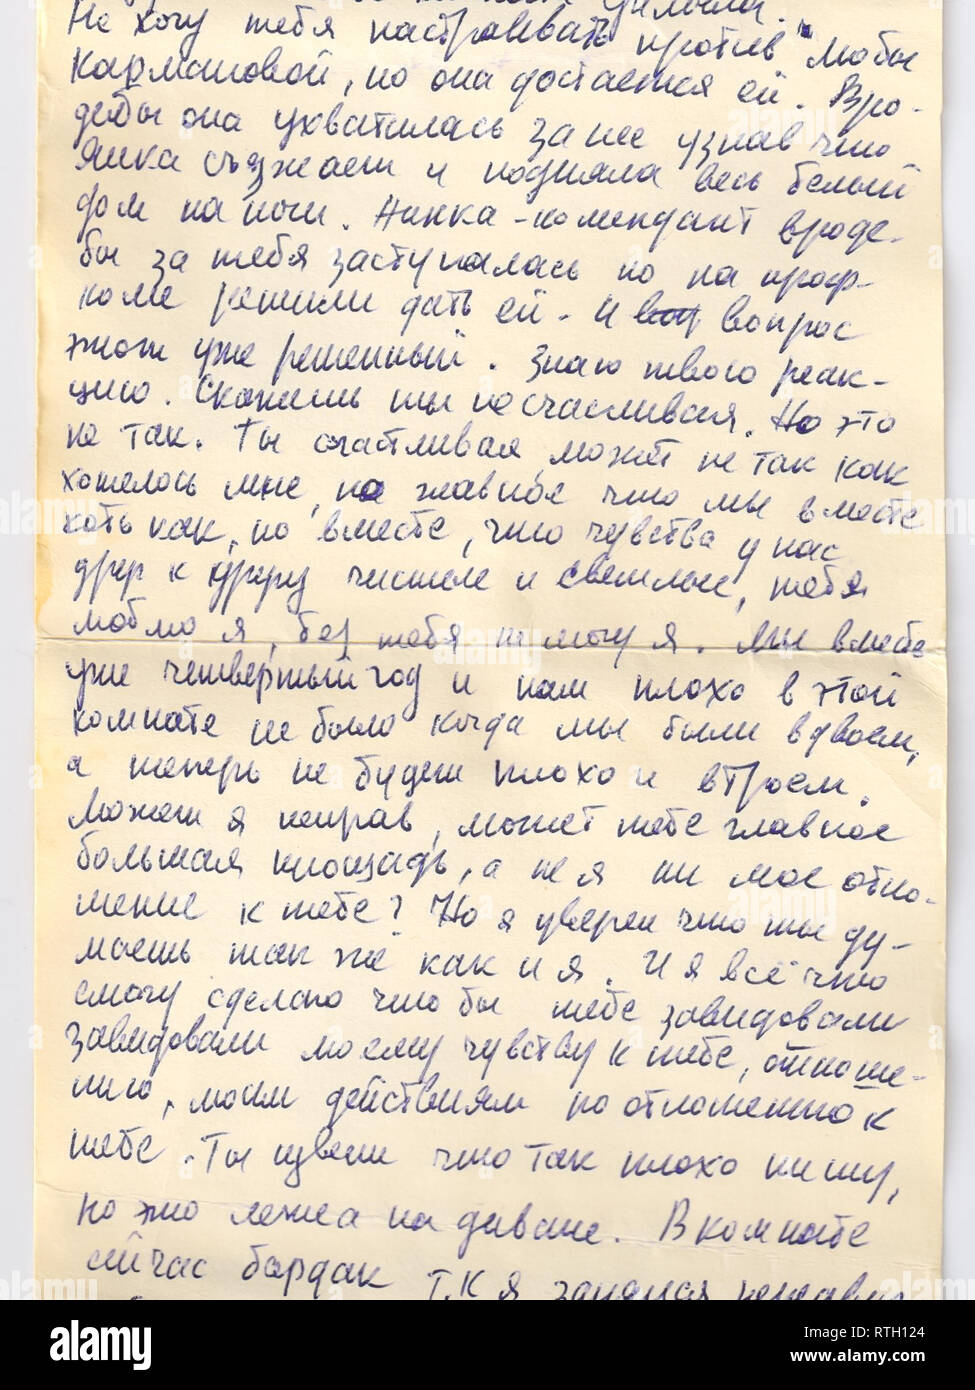 Не хочу тебя настраивать против Любы
Кармановой, но она достается ей. Вро-
дебы она ухватилась за нее узнав что
Янка съзжает и подняла весь белый
дом на ноги. Нинка-комендант вроде-
бы за тебя заступалась но на проф-
коме решили дать ей. И вопрос
этот уже решенный. Знаю твою реак-
цию. Скажешь ты несчастливая. Но это
не так. Ты счастливая, может не так как
хотелось мне, но главное что мы вместе
хоть как, но вместе, что чувства у нас
друг к другу чистые и светлые, тебя
люблю я, без тебя не могу я. Мы вместе
уже четвертый год и нам плохо в этой
комнате не было когда мы были вдвоем,
а теперь не будет плохо и втроем.
Может я неправ, может тебе главное
большая площадь, а не я ни мое отно-
шение к тебе? Но я уверен что ты ду-
маешь так же как и я. И я всё что
смогу сделаю что бы тебе завидовали
завидовали моему чувству к тебе, отноше-
нию, моим действиям по отношению к
тебе. Ты извени что так плохо пишу,
но это лежа на диване. В комнате
сейчас бардак т.к я занялся
alamy
RTH124
www.alamy.com